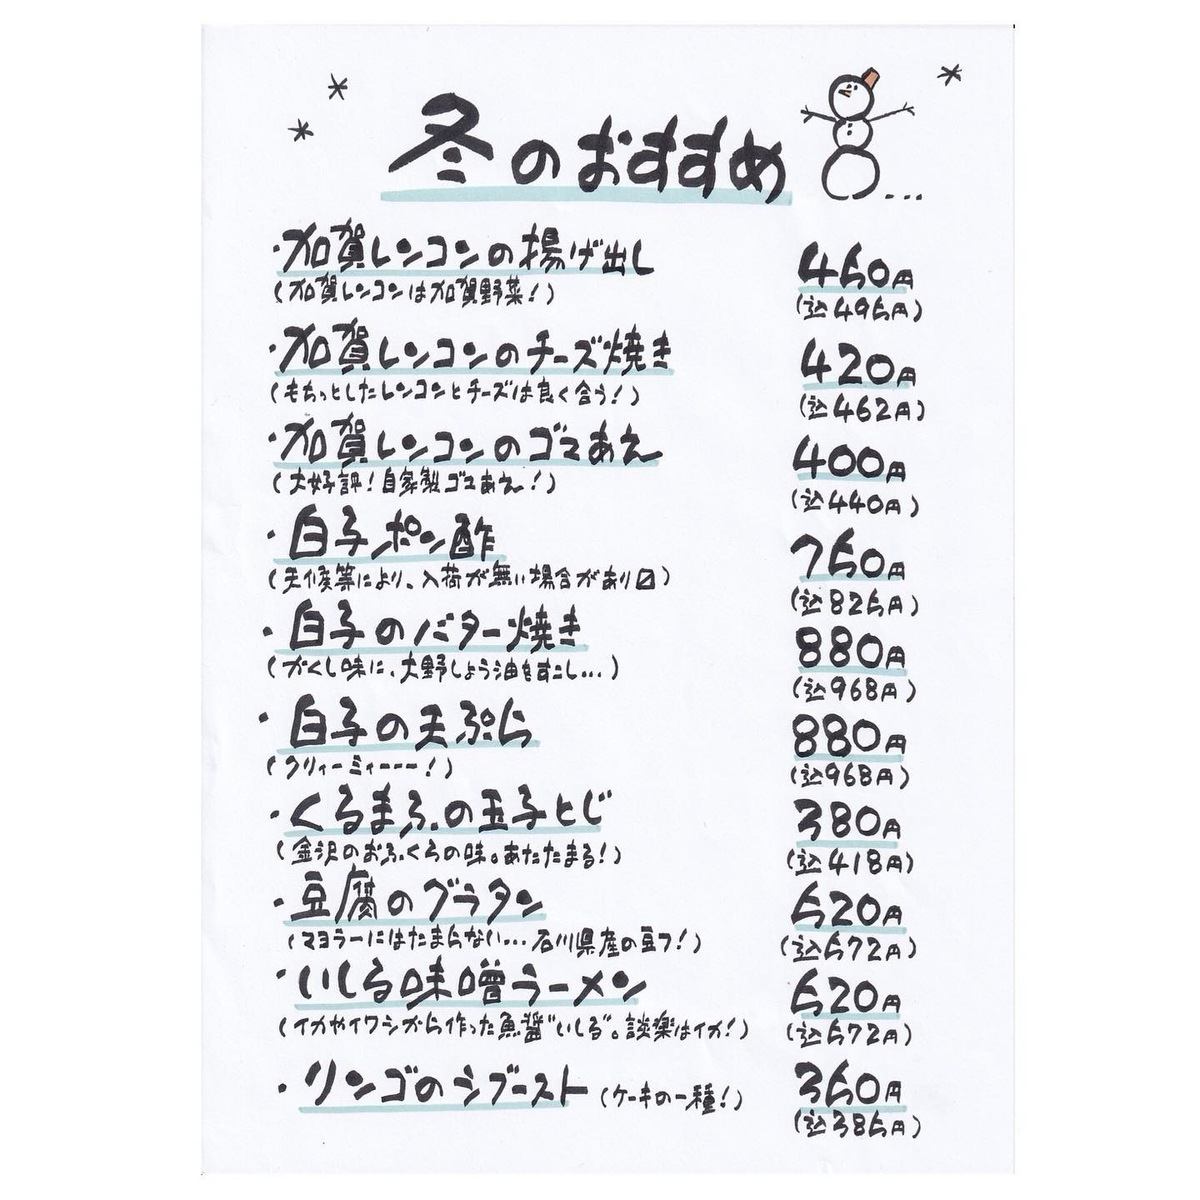 冬のおすすめ
・加賀レンコンの揚げ出し 450円
(加賀レンコンは加賀野菜!) (込495円)
・加賀レンコンのチーズ焼き 420円
(もちっとしたレンコンとチーズは良く合う!) (込462円)
・加賀レンコンのゴマあえ 400円
(大好評!自家製ゴマあえ!) (込440円)
・白子ポン酢 750円
(天候等により、入荷が無い場合があり〼) (込825円)
・白子のバター焼き 880円
(かくし味に、大野しょう油をすこし...) (込968円)
・白子の天ぷら 880円
(クリィーミィーーー!) (込968円)
・くるまふの玉子とじ 380円
(金沢のおふくろの味。あたたまる!) (込418円)
・豆腐のグラタン 520円
(マヨラーにはたまらない...石川県産の豆フ!) (込572円)
・いしる味噌ラーメン 520円
(イカやイワシから作った魚醤"いしる"。談楽はイカ!) (込572円)
・リンゴのシブースト (ケーキの一種!) 350円
(込385円)